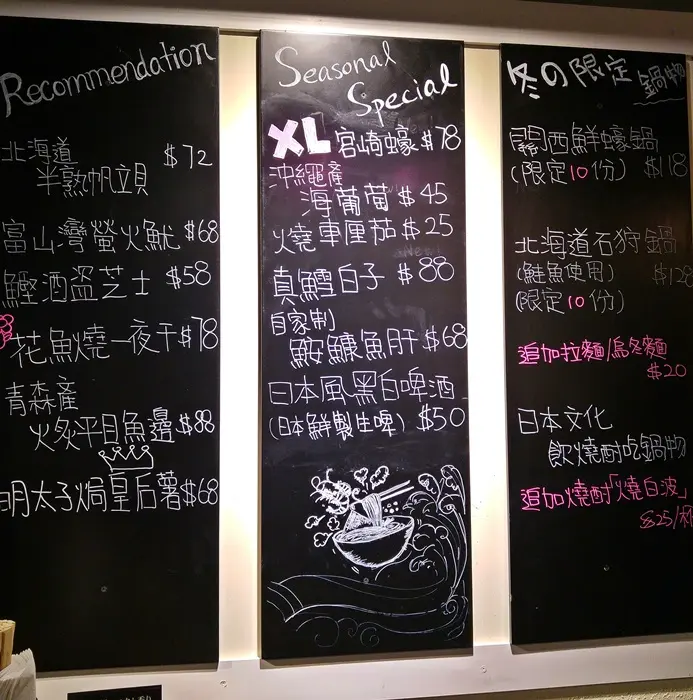 Recommendation
北海道 $72
半熟帆立貝
富山灣螢火魷 $68
鰹酒盜芝士 $58
花魚燒一夜干 $78
青森產
火炙平目魚邊 $88
明太子焗皇后薯 $68
Seasonal
Special
XL 宮崎蠔 $78
沖繩產
海葡萄 $45
燒車厘茄 $25
真鱈白子 $88
自家制
鮟鱇魚肝 $68
日本風黑白啤酒
(日本鮮製生啤) $50
冬の限定
鍋物
関西鮮蠔鍋
(限定10份) $118
北海道石狩鍋
(鮭魚使用) $128
(限定10份)
追加拉麵/烏冬麵
$20
日本文化
飲燒酎吃鍋物
追加燒酎「燒白波」
$25/杯